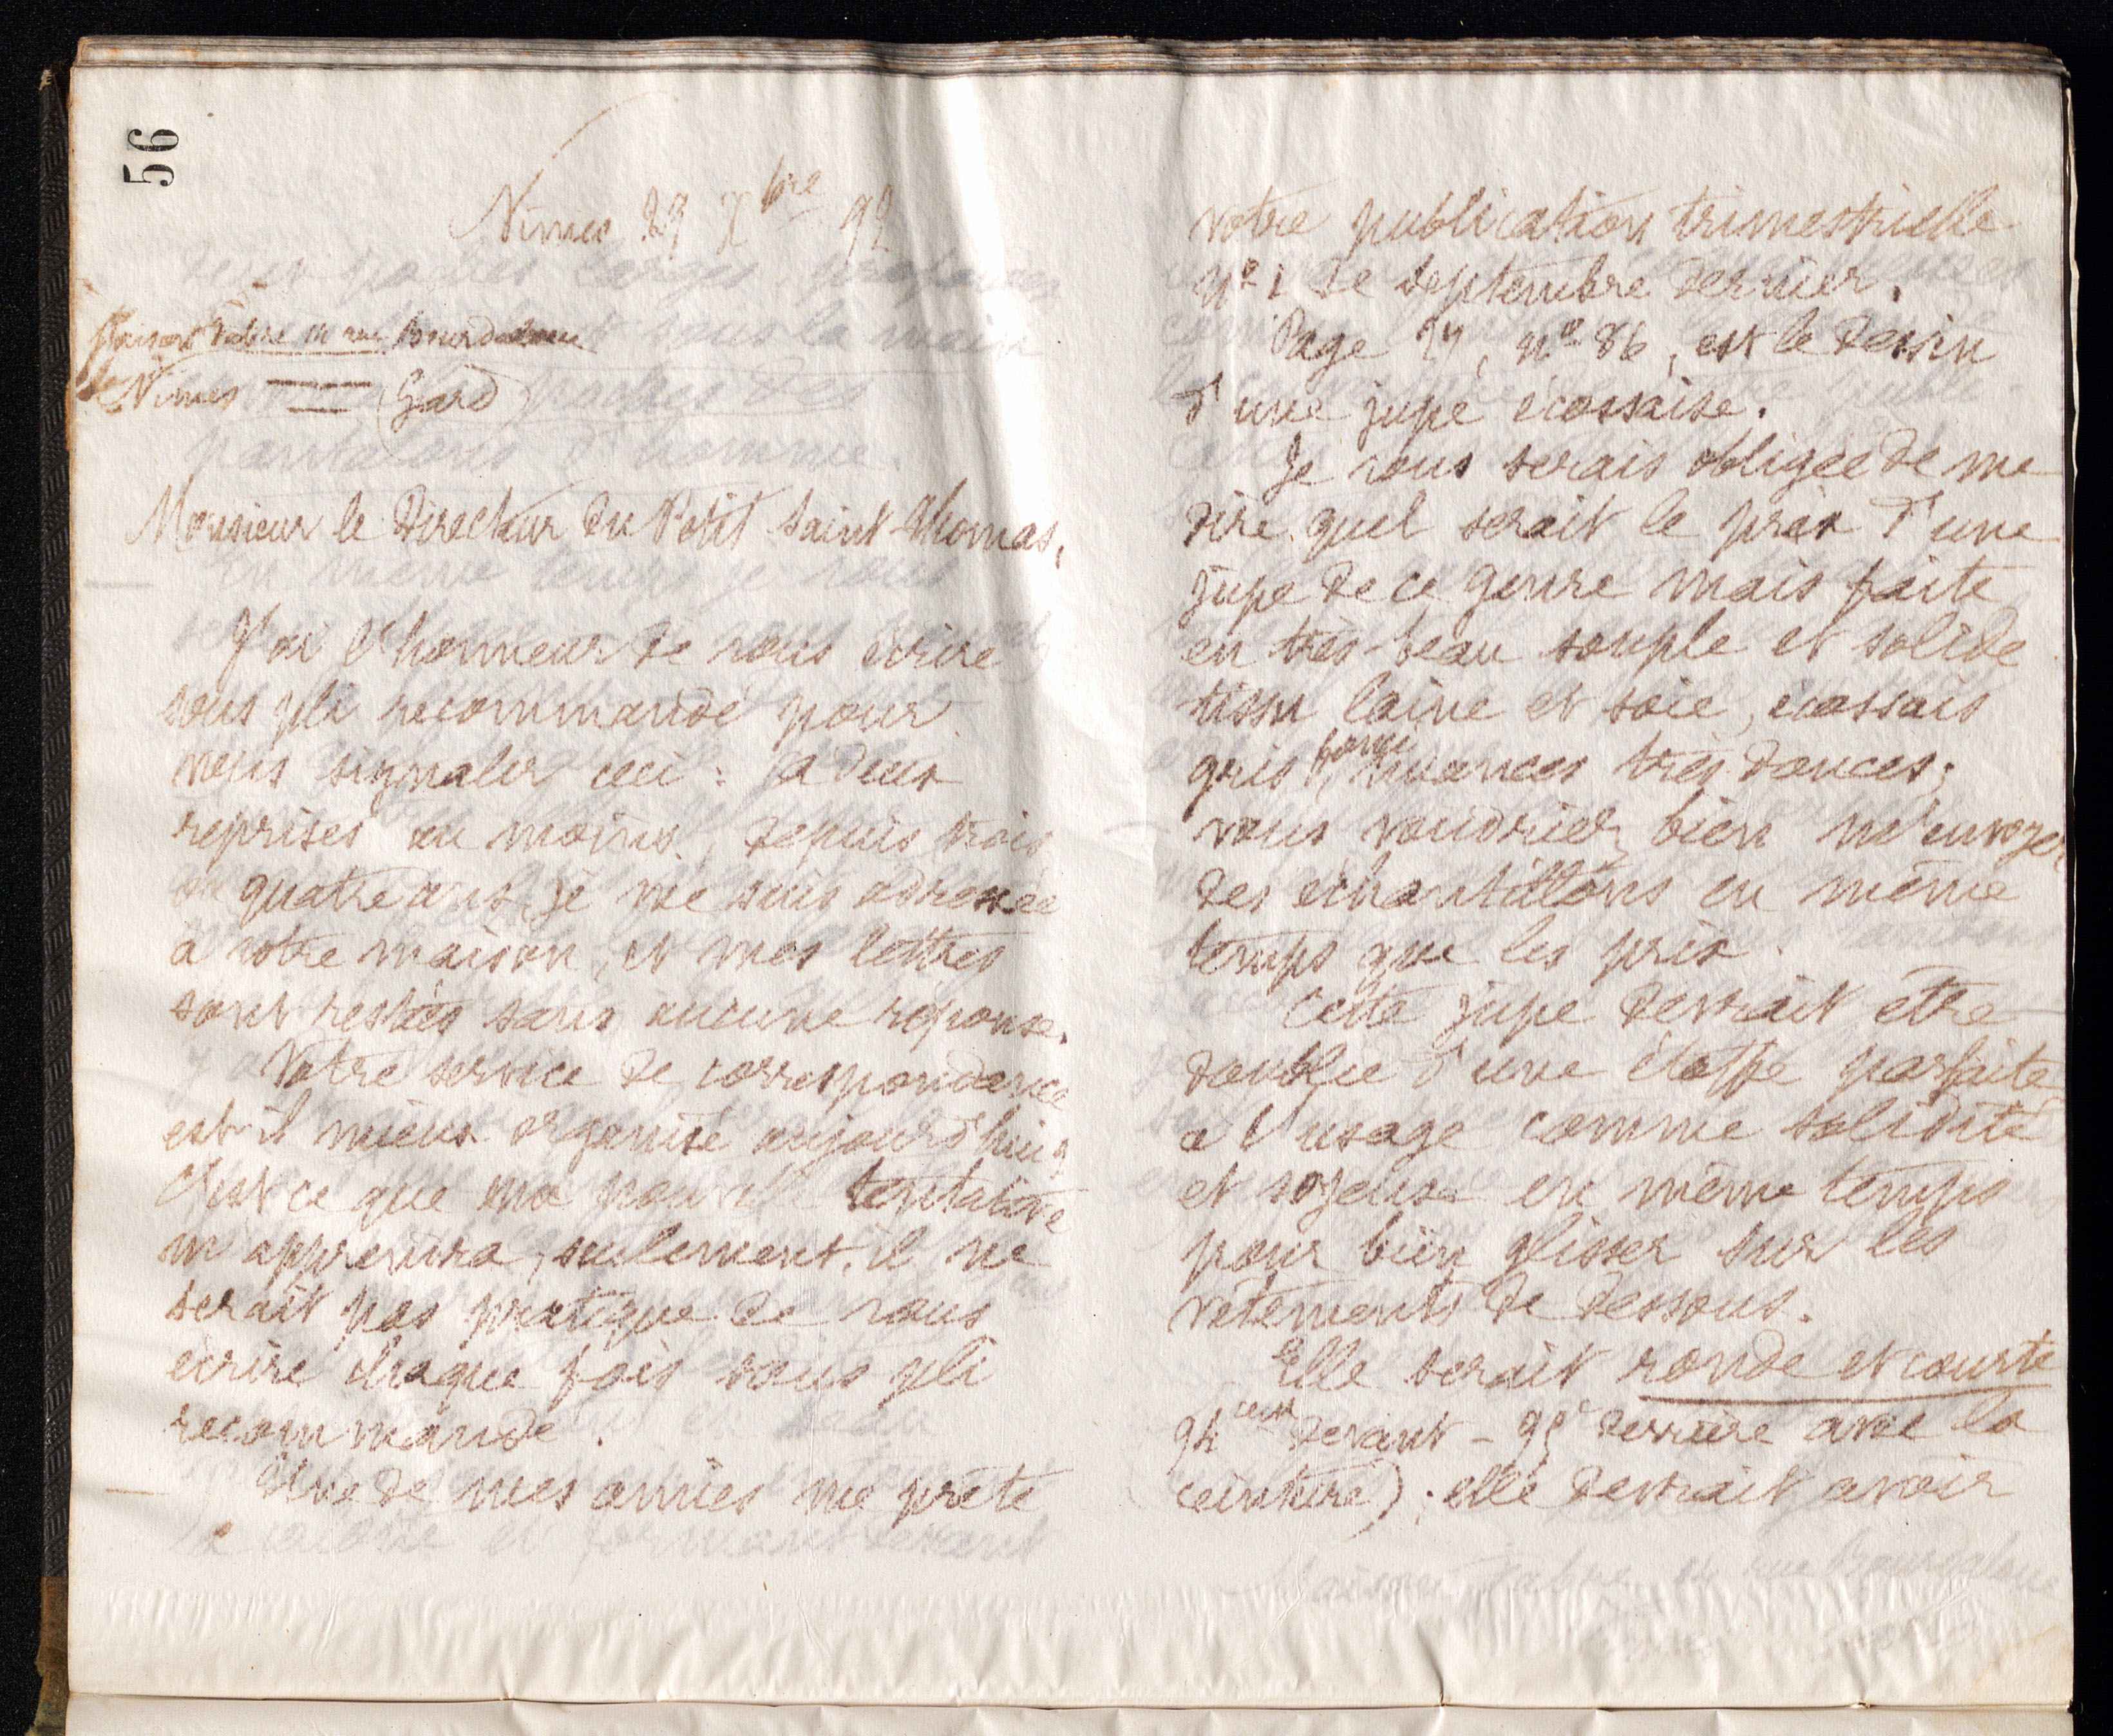 56
Nîmes 29 Xbre 92
Maison Valère 11 rue Bourdaloue
Nîmes (Gard)
Monsieur le Directeur du Petit Saint-Thomas,
J'ai l'honneur de vous écrire
sous pli recommandé pour
vous signaler ceci : à deux
reprises au moins, depuis trois
ou quatre ans, je me suis adressée
à votre maison, et mes lettres
sont restées sans aucune réponse.
Votre service de correspondance
est-il mieux organisé aujourd'hui ?
C'est ce que ma nouvelle tentative
m'apprendra, seulement, il ne
serait pas pratique de vous
écrire chaque fois sous pli
recommandé.
Une de mes amies me prête
votre publication trimestrielle
nº 1 de septembre dernier.
Page 27, nº 86, est le dessin
d'une jupe écossaise.
Je vous serais obligée de me
dire quel serait le prix d'une
jupe de ce genre mais faite
en très-beau souple et solide
tissu laine et soie, écossais
gris foncé, nuances très douces ;
vous voudriez bien m'envoyer
des échantillons en même
temps que les prix.
Cette jupe devrait être
doublée d'une étoffe parfaite
à l'usage comme solidité
et soyeuse en même temps
pour bien glisser sur les
vêtements de dessous.
Elle serait ronde et courte
94 cent devant - 95 c derrière avec la
ceinture) ; elle devrait avoir